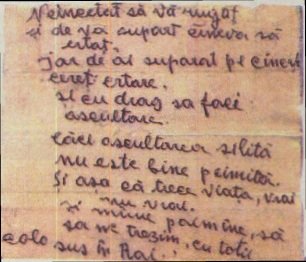 Neîncetat să vă rugați
și de vă supără cineva să
iertați.
Iar de ai supărat pe cineva
cereți ertare.
Și cu drag sa faci
ascultare.
Căci ascultarea silită
nu este bine primită.
Și așa că trece viața, vrai
nu vrai.
și mâine poimine, să
sa ne trezim, cu toții
acolo sus în Rai.